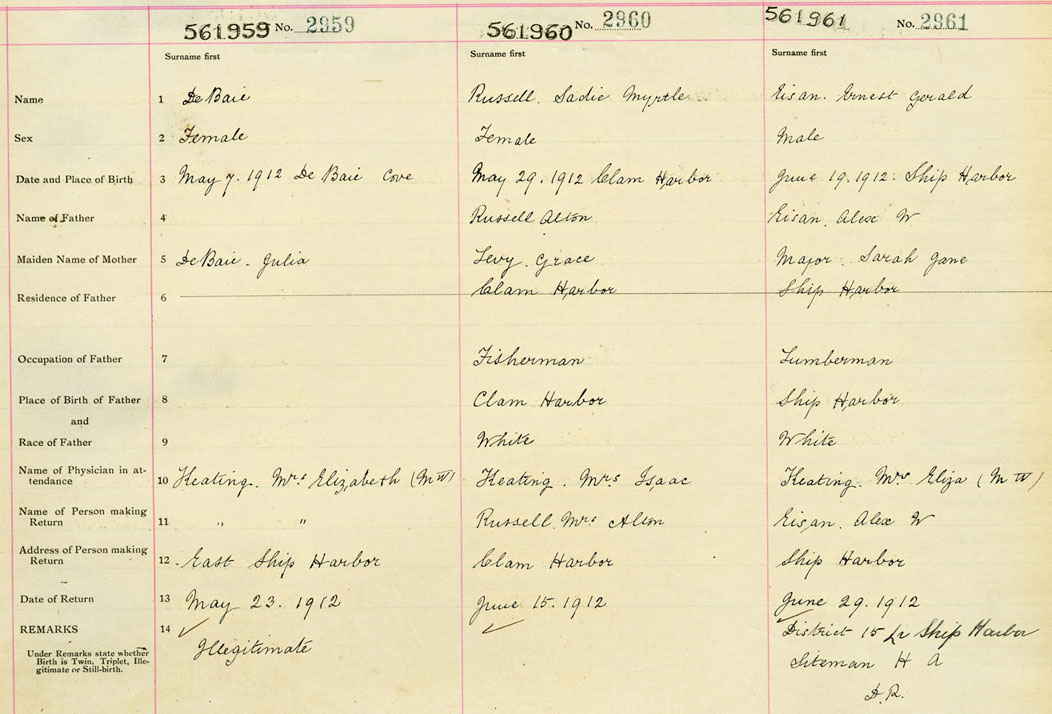 561959 No. 2959 561960 No. 2960 561961 No. 2961
Surname first Surname first Surname first
Name 1 De Baie Russell. Sadie Myrtle Eisan. Ernest Gerald
Sex 2 Female Female Male
Date and Place of Birth 3 May 7. 1912 De Baie Cove May 29. 1912 Clam Harbor June 19. 1912. Ship Harbor
Name of Father 4 Russell Alton Eisan. Alex W
Maiden Name of Mother 5 De Baie. Julia Levy. Grace Major. Sarah Jane
Residence of Father 6 Clam Harbor Ship Harbor
Occupation of Father 7 Fisherman Lumberman
Place of Birth of Father 8 Clam Harbor Ship Harbor
and
Race of Father 9 White White
Name of Physician in at-
tendance 10 Keating. Mrs Elizabeth (M W) Keating. Mrs Isaac Keating. Mrs Eliza (M W)
Name of Person making
Return 11 " " Russell. Mrs Alton Eisan. Alex W
Address of Person making
Return 12 East Ship Harbor Clam Harbor Ship Harbor
Date of Return 13 May 23. 1912 June 15. 1912 June 29. 1912
REMARKS 14 ✓ ✓ ✓ District 15 Ship Harbor
Under Remarks state whether
Birth is Twin, Triplet, Ille-
gitimate or Still-birth.
Illegitimate
Siteman H A
D. R.